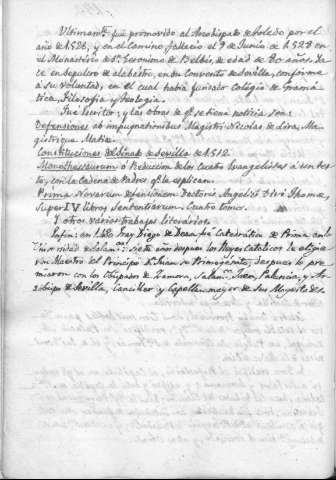 Ultimamte. fué promovido al Arzobispado de Toledo por el
año de 1523, y en el camino falleció el 9 de Junio de 1523 en
el Monasterio de Sn. Geronimo de Belbis, de edad de 80 años. Ya-
ce en sepulcro de alabastro, en su Convento de Sevilla, conforme
á su voluntad, en el cual había fundado Colegio de Gramá-
tica, Filosofia y Teologia.
Fué Escritor, y las obras de qe. se tiene noticia son:
Defensiones ab impugnationibus Magistri Nicolas de Lira, Ma-
gistrique Matiae.
Constituciones del Sínodo de Sevilla de 1512.
Monathessaron ó Reduccion de los Cuatro Evangelistas á un tex-
to, con la Cadena de Padres qe. lo esplican.
Prima Novarum defensionum Doctoris Angelici Divi Thomae,
super IV libros Sententiarum, Cuatro tomos.
Y otros varios trabajos literarios.
Fray Diego de Deza fué Catedrático de Prima en la
Universidad de Salamca. Siete años despues los Reyes Catolicos le eligie-
ron Maestro del Principe Dn. Juan su Primogénito, despues lo pre-
miaron con los Obispados de Zamora, Salamca. Jaen, Palencia, y Ar-
zobispo de Sevilla, Canciller y Capellan mayor de sus Majestades.